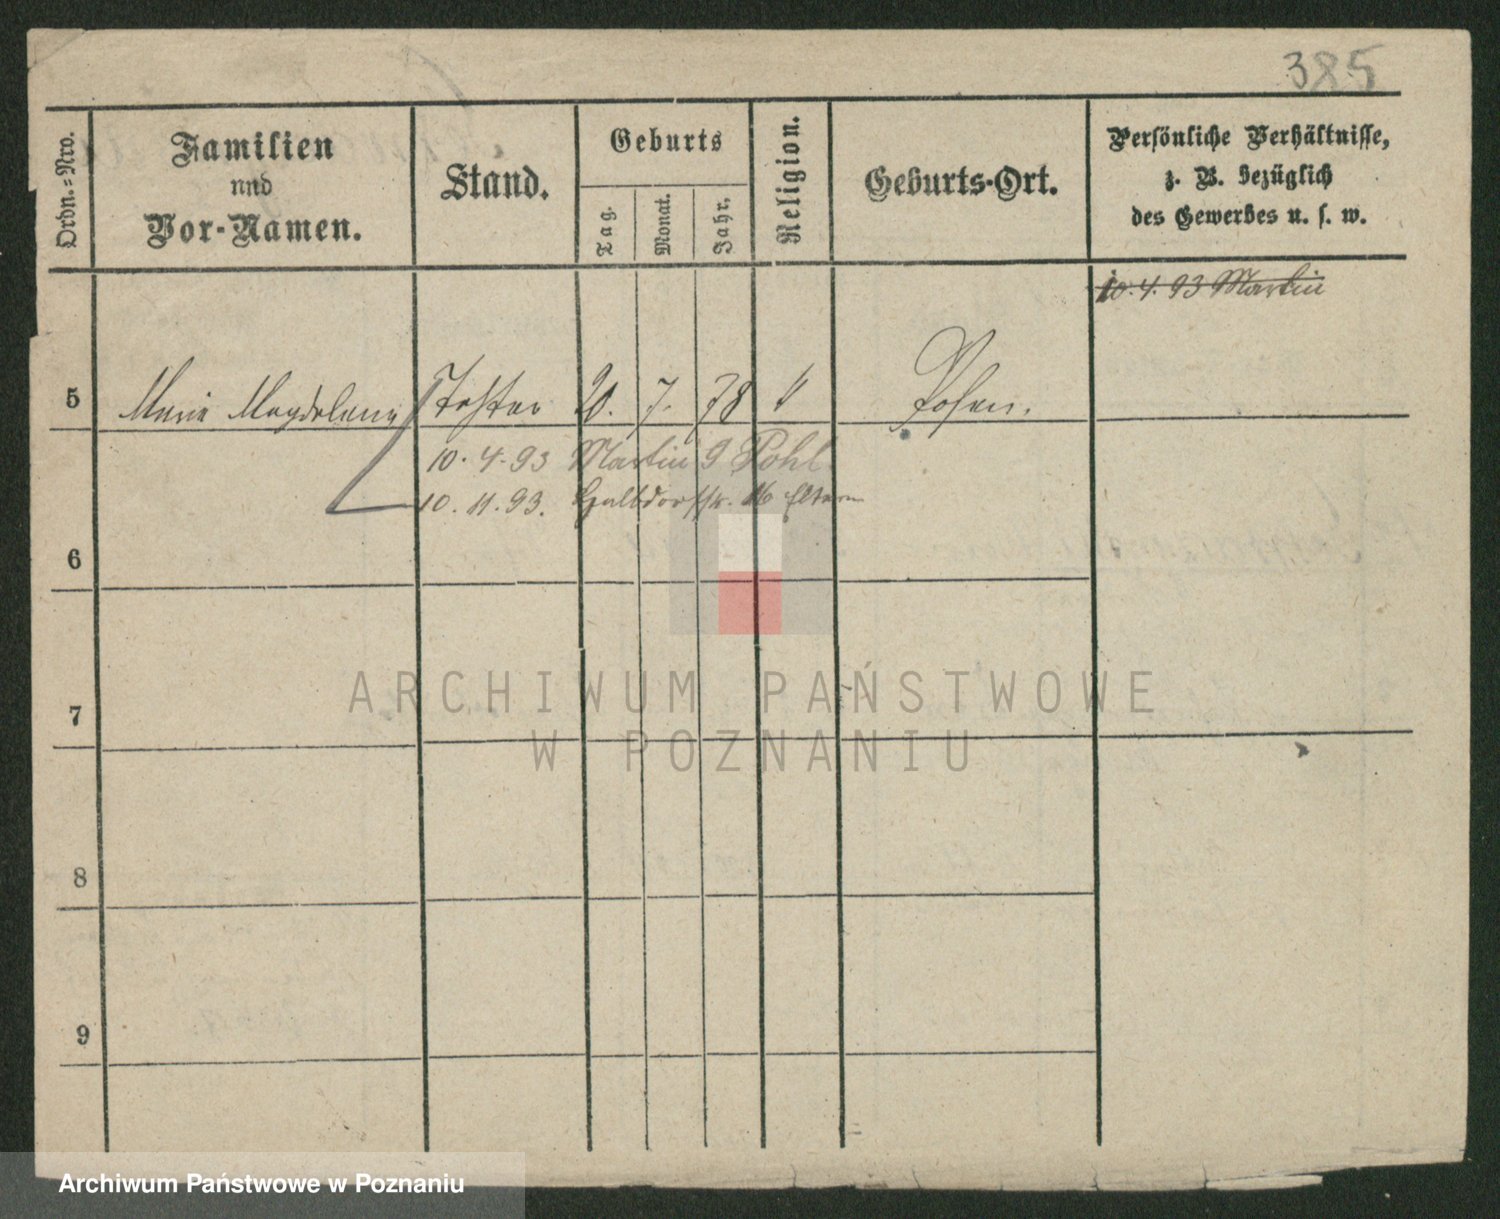 385
Ordn.=Nro.
Familien
und
Vor-Namen.
Stand.
Geburts
Tag.
Monat.
Jahr.
Religion.
Geburts-Ort.
Persönliche Verhältnisse,
z. B. bezüglich
des Gewerbes u. s. w.
10. 4. 93 Martin
5 Marie Magdalena Tochter 20. 7. 78 Posen.
10. 4. 93 Martin 9 Pohl
10. 11. 93. Halbdorfstr. 16 Eltern
6
7
8
9
ARCHIWUM PAŃSTWOWE
W POZNANIU
Archiwum Państwowe w Poznaniu